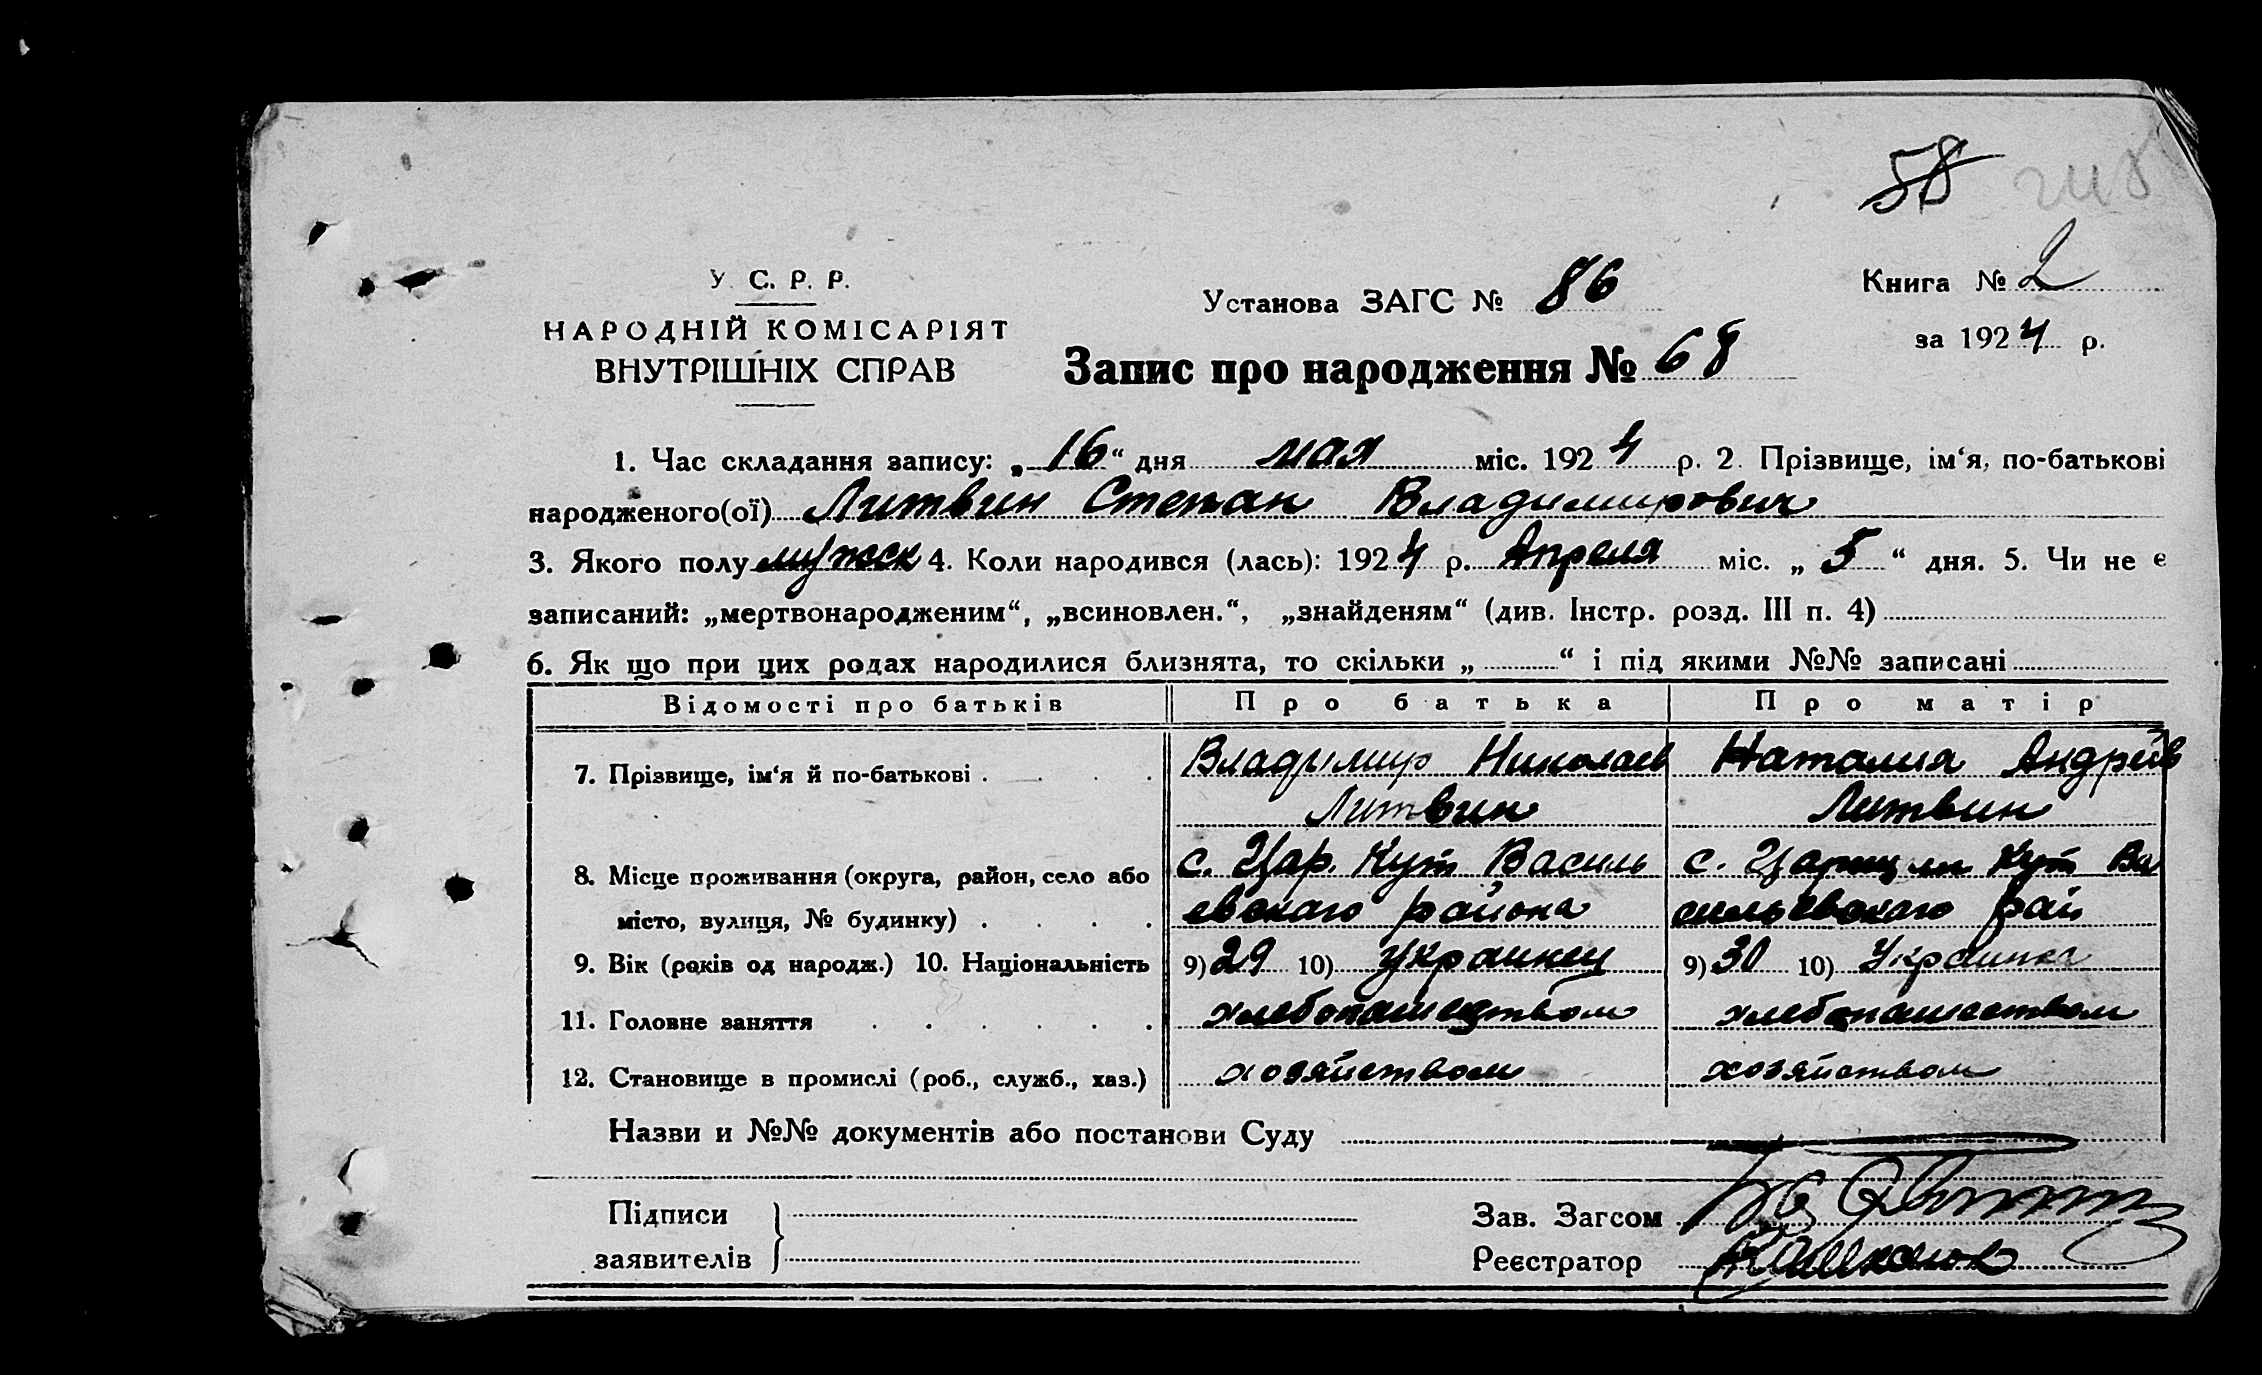 58
У. С. Р. Р.
НАРОДНІЙ КОМІСАРІЯТ
ВНУТРІШНІХ СПРАВ
Установа ЗАГС № 86
Книга № 2
за 1924 р.
Запис про народження № 68
1. Час складання запису: „16“ дня мая міс. 1924 р. 2. Прізвище, ім‘я, по-батькові
народженого(ої) Литвин Степан Владимирович
3. Якого полу мужск 4. Коли народився (лась): 1924 р. Апреля міс. „5“ дня. 5. Чи не є
записаний: „мертвонародженим“, „всиновлен.“, „знайденям“ (див. Інстр. розд. III п. 4)
6. Як що при цих родах народилися близнята, то скільки „ “ і під якими №№ записані
Відомості про батьків Про батька Про матір
7. Прізвище, ім‘я й по-батькові . . . . Владимир Николаев Наталия Андреев
Литвин Литвин
8. Місце проживання (округа, район, село або с. Цар. Кут Василь с. Цариц Кут Ва
місто, вулиця, № будинку) . . . . евского района сильевского рай
9. Вік (років од народж.) 10. Національність 9) 29 10) Украинец 9) 30 10) Украинка
11. Головне заняття . . . . . . хлебопашеством хлебопашеством
12. Становище в промислі (роб., служб., хаз.) хозяйством хозяйством
Назви и №№ документів або постанови Суду
Підписи
заявителів
Зав. Загсом
Реєстратор